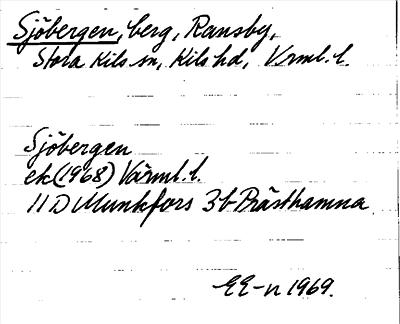 Sjöbergen, berg, Ransby,
Stora Kils sn, Kils hd, Vrml. l.
Sjöbergen
ek (1968) Värml. l.
11 D Munkfors 3 b Prästhamna
EE-n 1969.